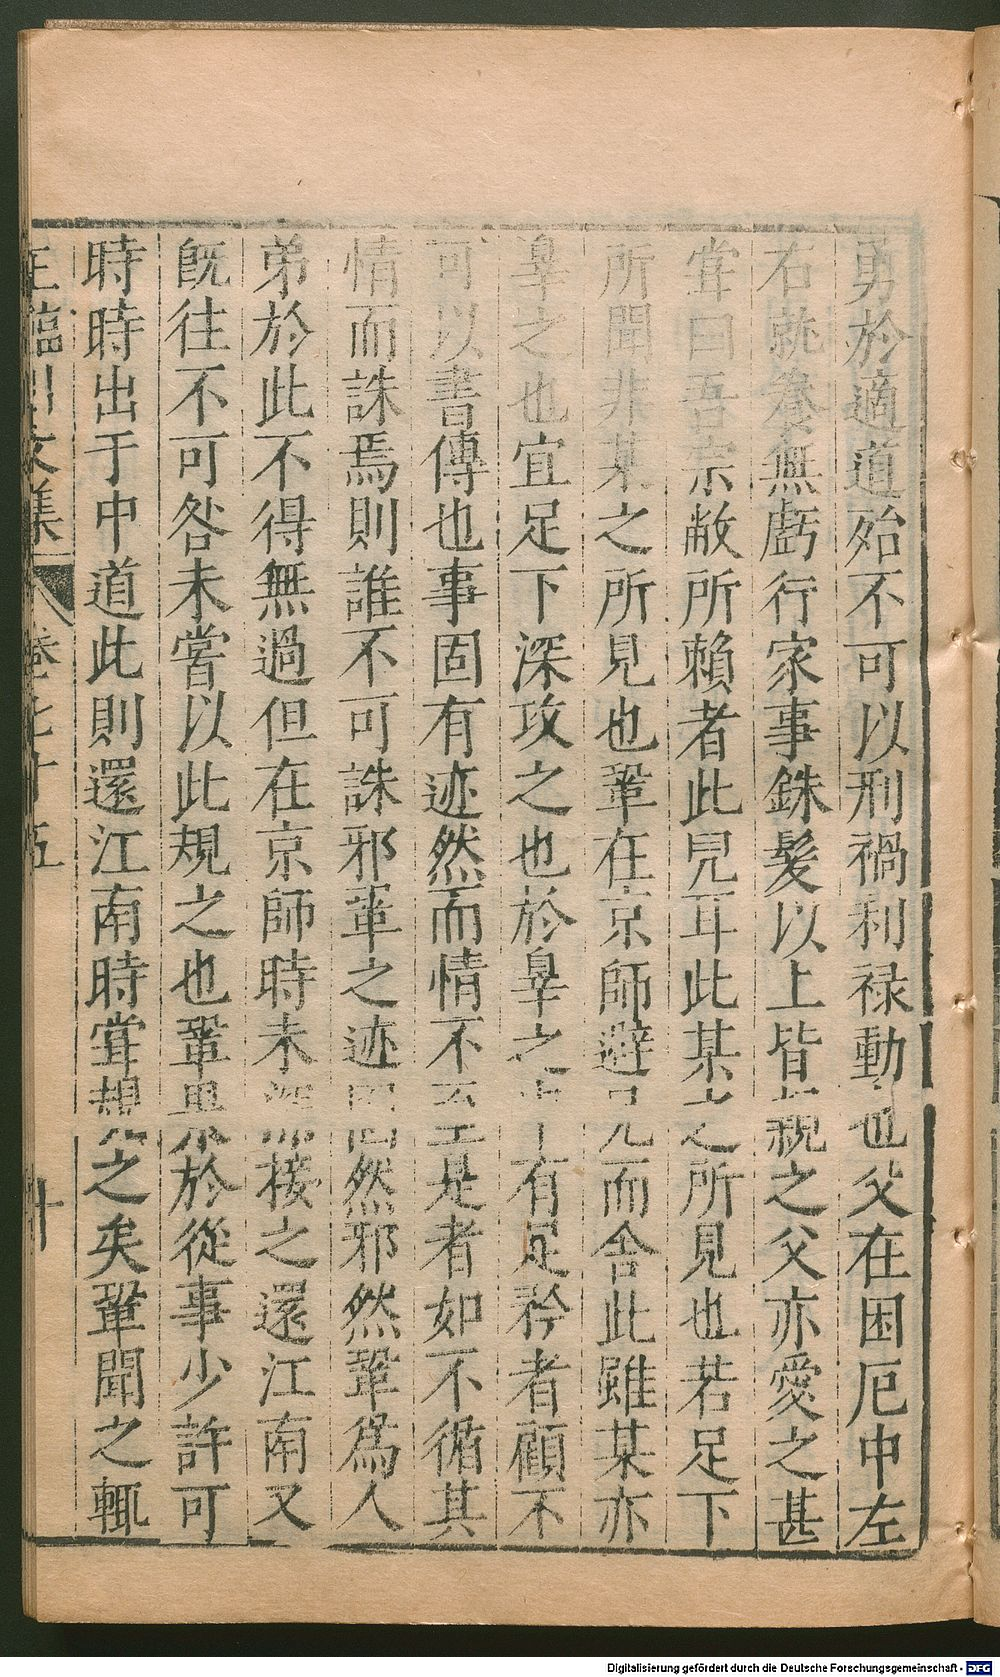 勇於適道殆不可以刑禍利禄動也父在困厄中左
右就養無虧行家事銖髮以上皆親之父亦愛之甚
甞曰吾宗敝所賴者此兒耳此某之所見也若足下
所聞非某之所見也鞏在京師避兄而舍此雖某亦
辠之也宜足下深攻之也於辠之中有足矜者顧不
可以書傳也事固有迹然而情不至是者如不循其
情而誅焉則誰不可誅邪鞏之迹固然邪然鞏爲人
弟於此不得無過但在京師時未深接之還江南又
旣往不可咎未嘗以此規之也鞏果於從事少許可
時時出于中道此則還江南時甞規之矣鞏聞之輒
王臨川文集 卷七十五 十
Digitalisierung gefördert durch die Deutsche Forschungsgemeinschaft - DFG